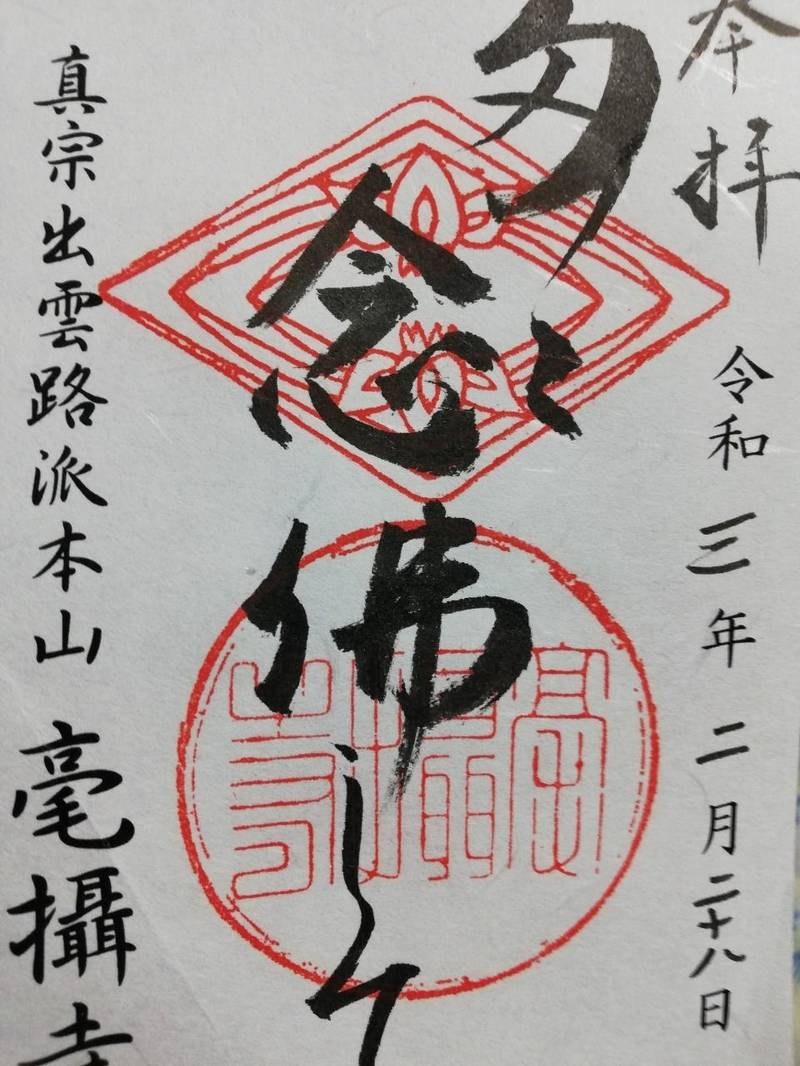 奉拝
令和三年二月二十八日
念佛して
真宗出雲路派本山 毫攝寺
毫攝寺